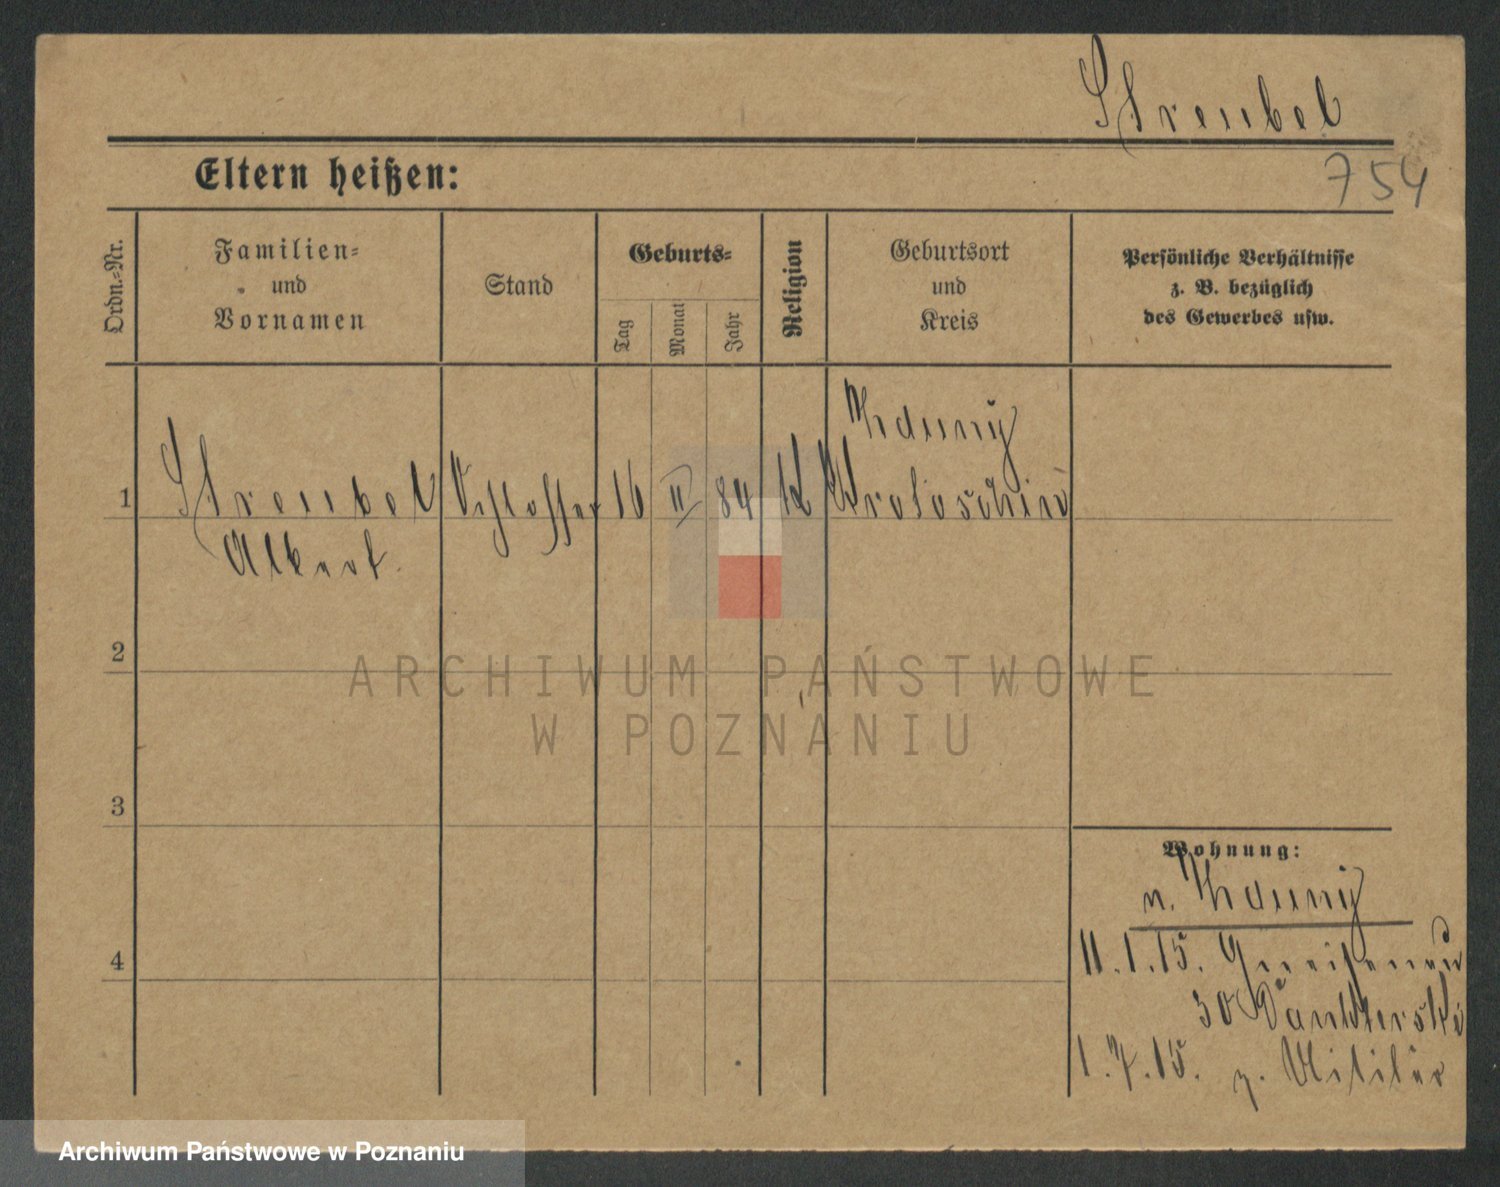 Streubel
754
Eltern heißen:
Ordn.=Nr.
Familien=
und
Vornamen
Stand
Geburts=
Tag
Monat
Jahr
Religion
Geburtsort
und
Kreis
Persönliche Verhältnisse
z. B. bezüglich
des Gewerbes usw.
Zduny
1 Streubel Schlosser 16 II 84 K Krotoschin
Albert.
2
ARCHIWUM PAŃSTWOWE
W POZNANIU
3
Wohnung:
n. Zduny
4
11.1.15.
30
1.7.15. z. Militär
Archiwum Państwowe w Poznaniu